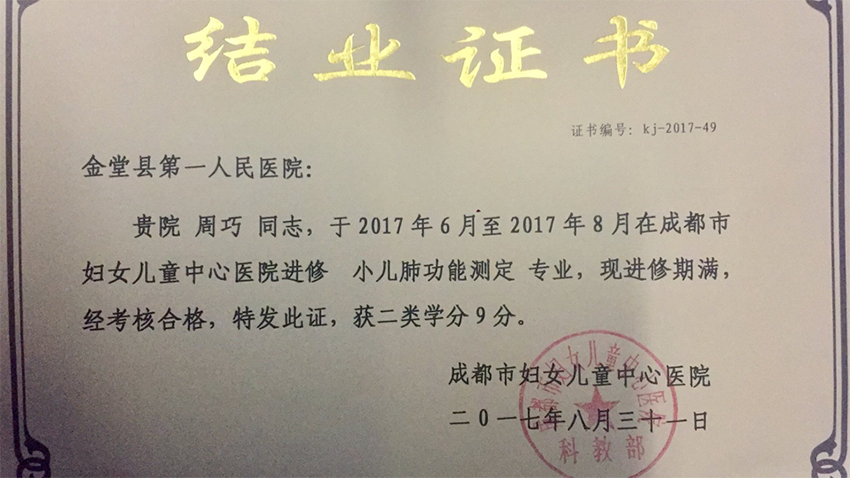 结业证书
证书编号：kj-2017-49
金堂县第一人民医院：
贵院 周巧 同志，于2017年6月至2017年8月在成都市
妇女儿童中心医院进修 小儿肺功能测定 专业，现进修期满，
经考核合格，特发此证，获二类学分9分。
成都市妇女儿童中心医院
二0一七年八月三十一日
成都市妇女儿童中心医院
科教部